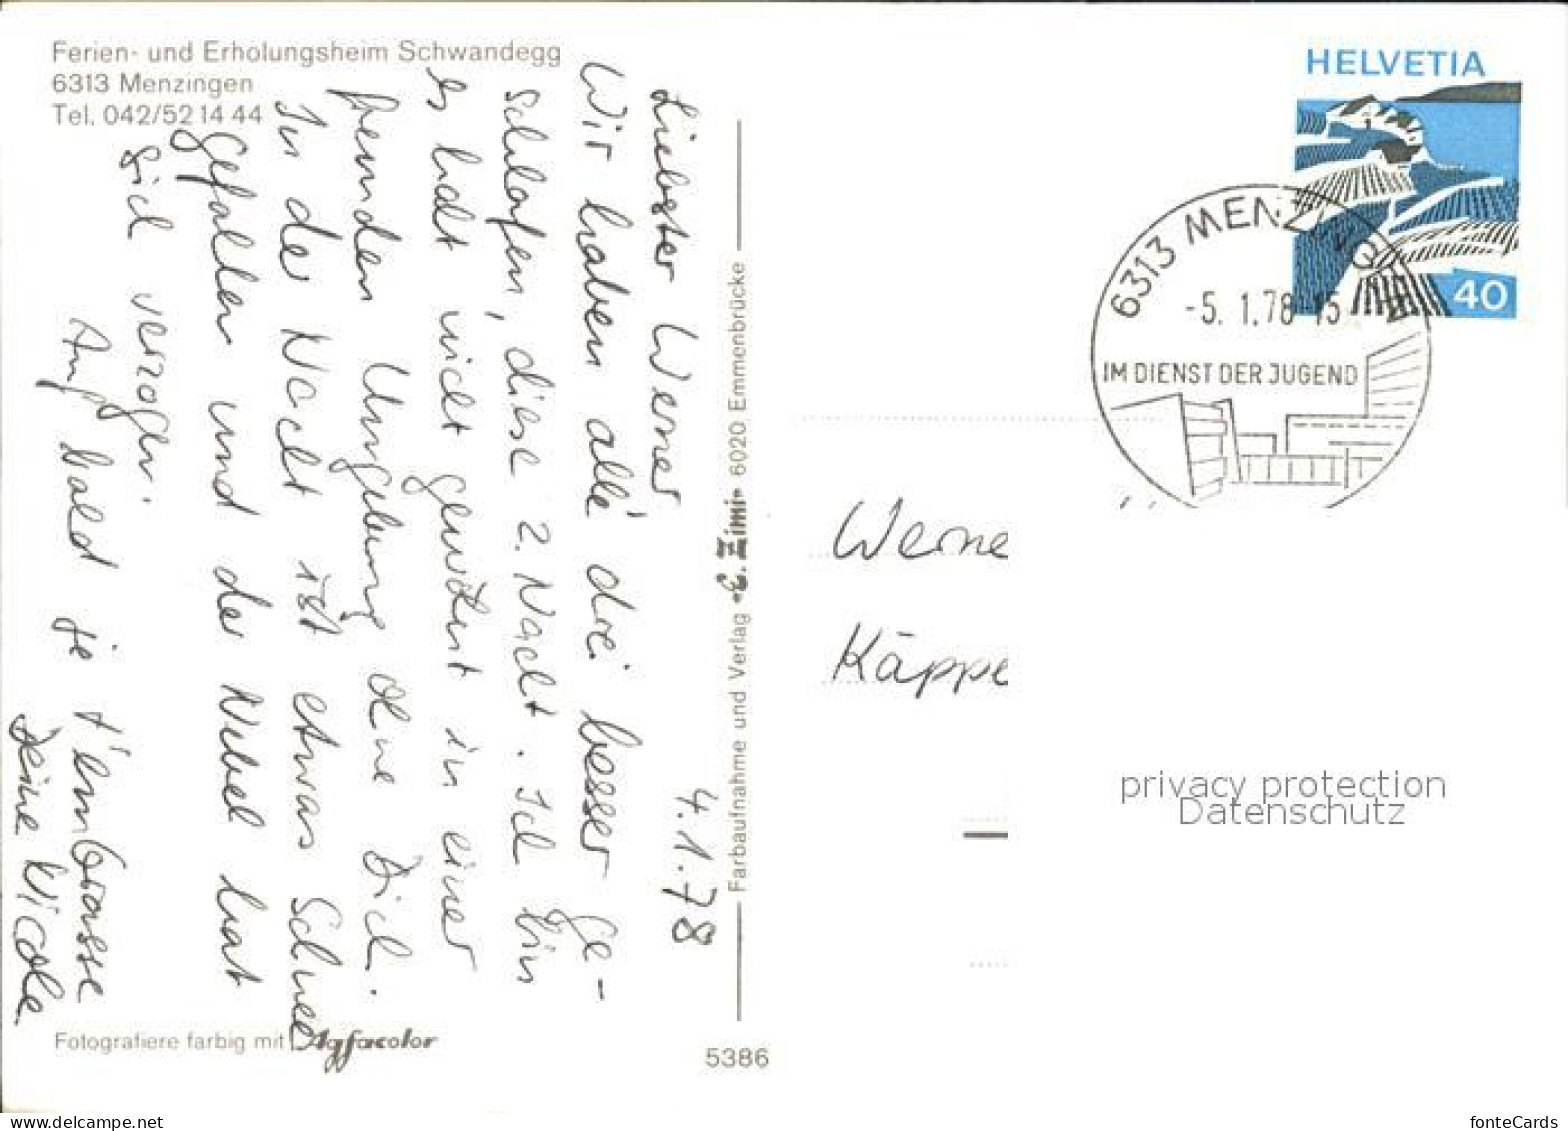 Ferien- und Erholungsheim Schwandegg
6313 Menzingen
Tel. 042/52 14 44
4.1.78
Liebster Werner
Wir haben alle drei besser ge-
schlafen, diese 2. Nacht. Ich bin
es halt nicht gewöhnt in einer
fremden Umgebung ohne Dich.
In der Nacht ist etwas Schnee
gefallen und der Nebel hat
sich verzogen.
Auf bald je t'embrasse
Deine Nicole
Fotografiere farbig mit Agfacolor
Farbaufnahme und Verlag «E. Zimi» 6020 Emmenbrücke
5386
HELVETIA
40
6313 MENZINGEN
-5. 1.78-15
IM DIENST DER JUGEND
Werne
Käppe
privacy protection
Datenschutz
www.delcampe.net
fonteCards